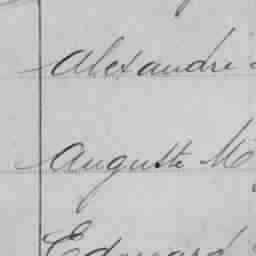 Alexandre
Auguste M
Edouard